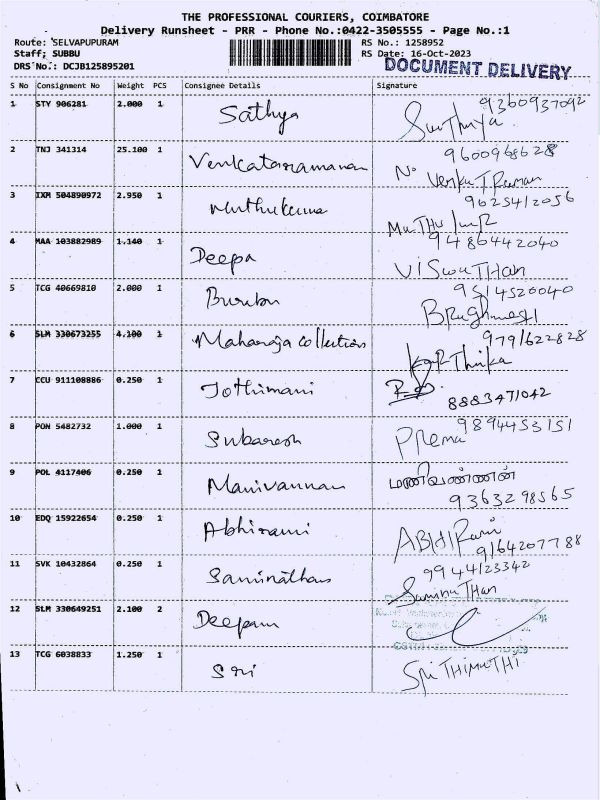 THE PROFESSIONAL COURIERS, COIMBATORE
Delivery Runsheet - PRR - Phone No.:0422-3505555 - Page No.:1
Route: SELVAPUPURAM
RS No.: 1258952
Staff; SUBBU
RS Date: 16-Oct-2023
DRS No.: DCJB125895201
DOCUMENT DELIVERY
S No Consignment No Weight PCS Consignee Details Signature
1 STY 906281 2.000 1 Sathya 9360937092
2 TNJ 341314 25.100 1 Venkataramanan 9600968628
3 IXM 504890972 2.950 1 Muthukuma 9625412056
4 MAA 103882989 1.140 1 Deepa 9486442040
ViSwaTHan
5 TCG 40669810 2.000 1 9514520040
6 SLM 330673255 4.100 1 Maharaja collections 9791622828
KaRThika
7 CCU 911108886 0.250 1 Jothimani
8883471042
8 PON 5482732 1.000 1 Subaresh 9894453151
Prema
9 POL 4117406 0.250 1 Manivannan மணிவண்ணன்
9363298565
10 EDQ 15922654 0.250 1 Abhirami ABHIRami
9164207788
11 SVK 10432864 0.250 1 Saminathan 9944123342
SaminaTHan
12 SLM 330649251 2.100 2 Deepam
13 TCG 6038833 1.250 1 Sri Sri THIMUTHI